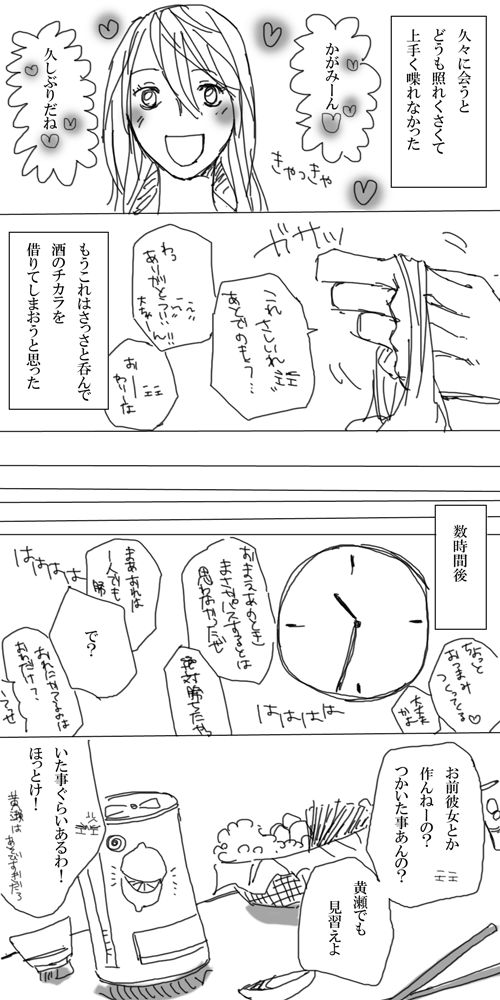 久々に会うと
どうも照れくさくて
上手く喋れなかった
かがみーん
久しぶりだね
きゃっきゃ
ガサッ
これ さしいれ
あとでのもう?…
わっ
ありがとう
おーい
もうこれはさっさと呑んで
酒のチカラを
借りてしまおうと思った
数時間後
ちょっと
おつまみ
つくってくる
大丈夫
かよ
おまえあのとき
まさかパスするとは
思わなかったぜ
絶対勝てたやろ
はははは
まあおれは
一人でも
勝
はははは
で?
おれだけ?
お前彼女とか
作んねーの?
つかいた事あんの?
黄瀬でも
見習えよ
いた事ぐらいあるわ!
ほっとけ!
黄瀬は
あそびすぎだろ